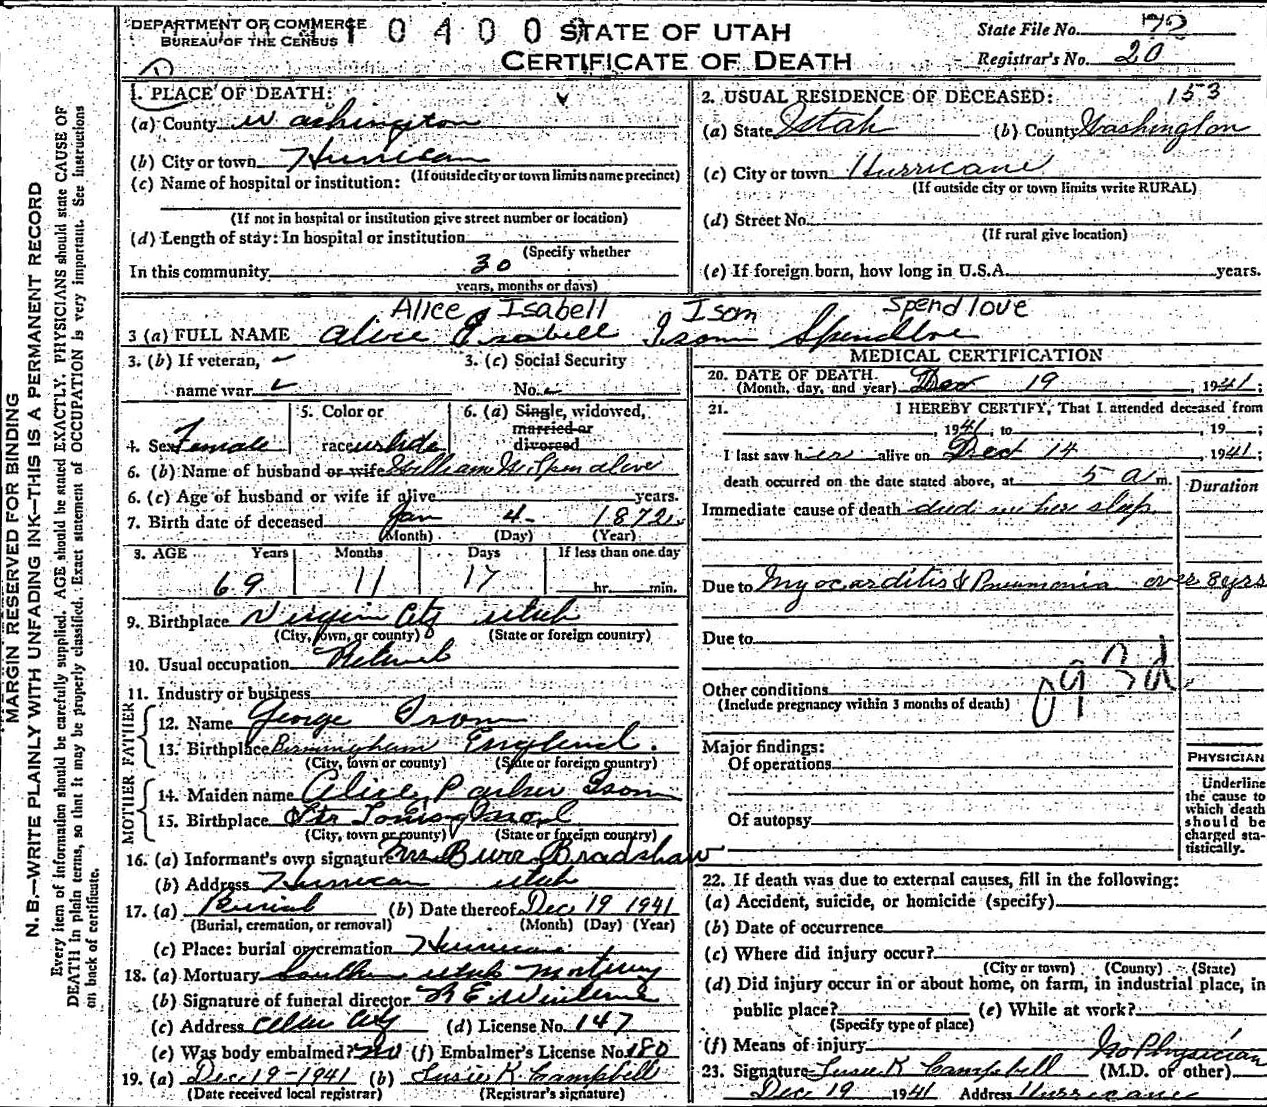 DEPARTMENT OF COMMERCE
BUREAU OF THE CENSUS
0 4 0 0
STATE OF UTAH
CERTIFICATE OF DEATH
State File No. 72
Registrar's No. 20
MARGIN RESERVED FOR BINDING
N. B.—WRITE PLAINLY WITH UNFADING INK—THIS IS A PERMANENT RECORD
Every item of information should be carefully supplied. AGE should be stated EXACTLY. PHYSICIANS should state CAUSE OF
DEATH in plain terms, so that it may be properly classified. Exact statement of OCCUPATION is very important. See instructions
on back of certificate.
1. PLACE OF DEATH:
(a) County Washington
(b) City or town Hurrican
(If outside city or town limits name precinct)
(c) Name of hospital or institution:
(If not in hospital or institution give street number or location)
(d) Length of stay: In hospital or institution
(Specify whether
In this community 30
years, months or days)
2. USUAL RESIDENCE OF DECEASED: 153
(a) State Utah (b) County Washington
(c) City or town Hurricane
(If outside city or town limits write RURAL)
(d) Street No.
(If rural give location)
(e) If foreign born, how long in U.S.A. years.
Alice Isabell Isom Spendlove
3 (a) FULL NAME Alice Isabell Isom Spendlove
3. (b) If veteran,
name war
3. (c) Social Security
No.
4. Sex Female
5. Color or
race white
6. (a) Single, widowed,
married or
divorced
6. (b) Name of husband or wife William W. Spendlove
6. (c) Age of husband or wife if alive years.
7. Birth date of deceased Jan 4 1872
(Month) (Day) (Year)
8. AGE Years Months Days If less than one day
69 11 17 hr. min.
9. Birthplace Virgin City Utah
(City, town, or county) (State or foreign country)
10. Usual occupation
11. Industry or business
FATHER
12. Name George Isom
13. Birthplace Birmingham England.
(City, town or county) (State or foreign country)
MOTHER
14. Maiden name Alice Parker Isom
15. Birthplace
(City, town or county) (State or foreign country)
16. (a) Informant's own signature Mrs Burr Bradshaw
(b) Address Hurrican Utah
17. (a) Burial (b) Date thereof Dec 19 1941
(Burial, cremation, or removal) (Month) (Day) (Year)
(c) Place: burial or cremation Hurricane
18. (a) Mortuary Southern Utah Mortuary
(b) Signature of funeral director
(c) Address Cedar City (d) License No. 147
(e) Was body embalmed? No (f) Embalmer's License No. 180
19. (a) Dec 19-1941 (b) Susie K Campbell
(Date received local registrar) (Registrar's signature)
MEDICAL CERTIFICATION
20. DATE OF DEATH.
(Month, day, and year) Dec 19, 1941;
21. I HEREBY CERTIFY, That I attended deceased from
, 1941, to , 19 ;
I last saw her alive on Dect 14, 1941;
death occurred on the date stated above, at 5 a m.
Duration
Immediate cause of death died in her sleep
Due to Myocarditis & Pneumonia over 8 yrs
Due to
Other conditions
(Include pregnancy within 3 months of death)
093d
Major findings:
Of operations
Of autopsy
PHYSICIAN
Underline
the cause to
which death
should be
charged sta-
tistically.
22. If death was due to external causes, fill in the following:
(a) Accident, suicide, or homicide (specify)
(b) Date of occurrence
(c) Where did injury occur?
(City or town) (County) (State)
(d) Did injury occur in or about home, on farm, in industrial place, in
public place? (e) While at work?
(Specify type of place)
(f) Means of injury
No Physician
23. Signature Susie K Campbell (M.D. or other)
Dec 19 1941 Address Hurricane